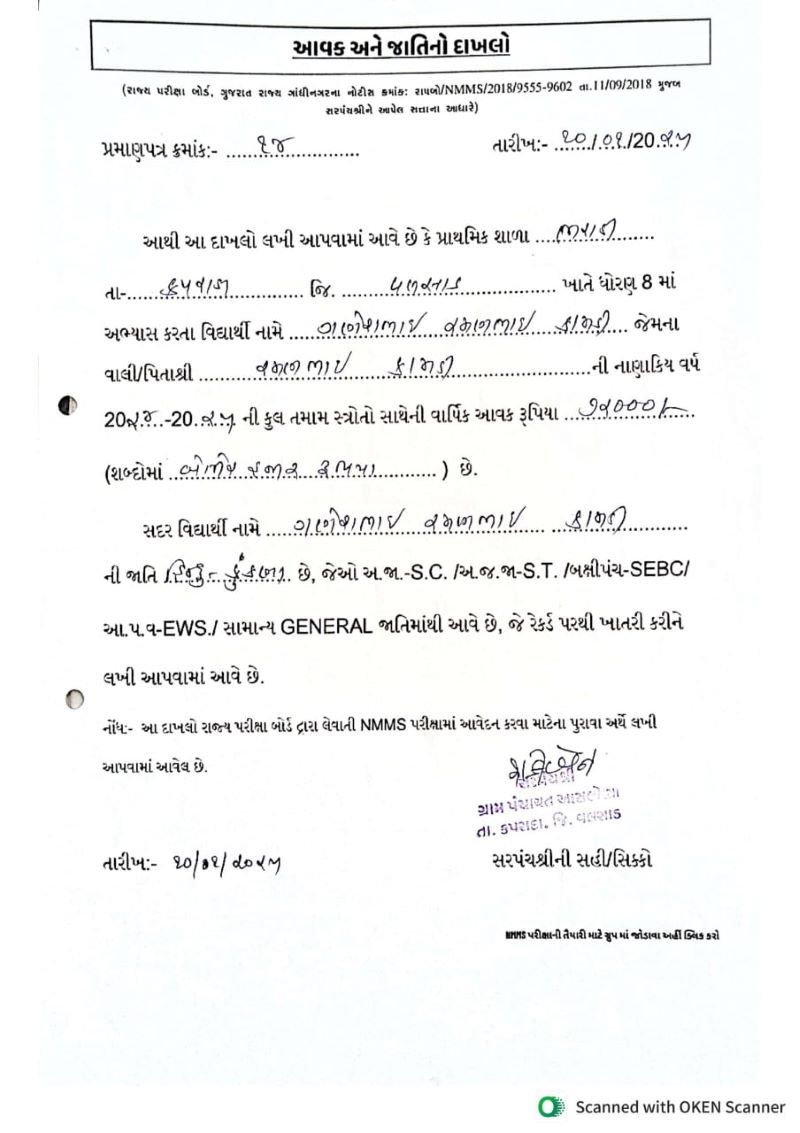 આવક અને જાતિનો દાખલો
(રાજ્ય પરીક્ષા બોર્ડ, ગુજરાત રાજ્ય ગાંધીનગરના નોટીસ ક્રમાંક: રાપબો/NMMS/2018/9555-9602 તા.11/09/2018 મુજબ
સરપંચશ્રીને આપેલ સત્તાના આધારે)
પ્રમાણપત્ર ક્રમાંક:- ....૧૪....
તારીખ:- ૧૦/.૦૧/20.૨૫
આથી આ દાખલો લખી આપવામાં આવે છે કે પ્રાથમિક શાળા
તા-......કપરાડા......... જિ. ......વલસાડ............... ખાતે ધોરણ 8 માં
અભ્યાસ કરતા વિદ્યાર્થી નામે ....ગણેશભાઇ ... જેમના
વાલી/પિતાશ્રી ..................ની નાણાકિય વર્ષ
20૨૪..-20.૨૫ ની કુલ તમામ સ્ત્રોતો સાથેની વાર્ષિક આવક રૂપિયા
(શબ્દોમાં ... હજાર રૂપિયા............) છે.
સદર વિદ્યાર્થી નામે ....ગણેશભાઇ ...
ની જાતિ હિન્દુ- કુંકણા. છે, જેઓ અ.જા.-S.C. /અ.જ.જા-S.T. /બક્ષીપંચ-SEBC/
આ.પ.વ-EWS./ સામાન્ય GENERAL જાતિમાંથી આવે છે, જે રેકર્ડ પરથી ખાતરી કરીને
લખી આપવામાં આવે છે.
નોંધ:- આ દાખલો રાજ્ય પરીક્ષા બોર્ડ દ્વારા લેવાતી NMMS પરીક્ષામાં આવેદન કરવા માટેના પુરાવા અર્થે લખી
આપવામાં આવેલ છે.
સરપંચશ્રી
ગ્રામ પંચાયત
તા. કપરાડા. જિ. વલસાડ
તારીખ:- ૧૦/૦૧/૨૦૨૫
સરપંચશ્રીની સહી/સિક્કો
NMMS પરીક્ષાની તૈયારી માટે ગ્રુપ માં જોડાવા અહીં ક્લિક કરો
Scanned with OKEN Scanner